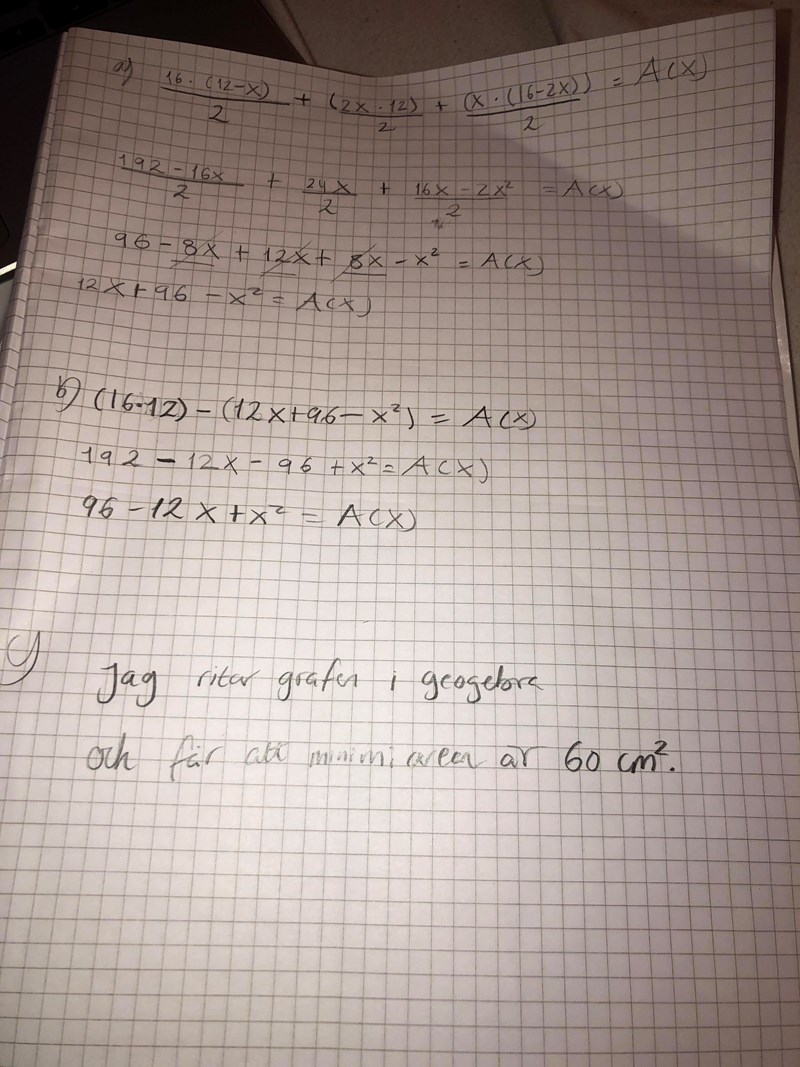 a) 16 · (12-x)/2 + (2x · 12)/2 + (x · (16-2x))/2 = A(x)
192 - 16x/2 + 24x/2 + 16x - 2x²/2 = A(x)
96 - 8x + 12x + 8x - x² = A(x)
12x + 96 - x² = A(x)
b) (16·12) - (12x+96-x²) = A(x)
192 - 12x - 96 + x² = A(x)
96 - 12x + x² = A(x)
c) Jag ritar grafen i geogebra
och får att minimi arean är 60 cm².